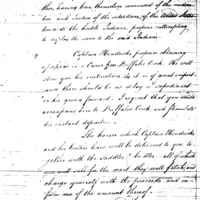 they having been themselves convinced of the modera-
tion and Justice of the intentions of the United States
towards the hostile Indians, propose attempting
to explain the same to the said Indians.
Captain Hendricks proposes returning
in a Canoe from Buffalo Creek. He will
shew you his instructions, but it is of great import
and there should be no delay or impediment
in his going forward. I request that you would
accompany him to Buffalo Creek, and
his instant departure.
The horses which Captain Hendricks
and his brother have, will be delivered to you to-
gether with the Saddles & bridles all of which
you will sell for the most they will fetch, and
charge yourself with the proceeds and in-
form me of the amount thereof.